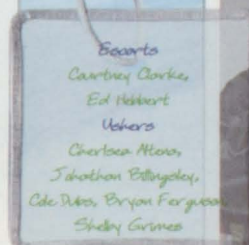 Escorts
Courtney Clarke,
Ed Hebbert
Ushers
Chertsea Altena,
Johnathan Billingsley,
Cole Dubs, Bryan Ferguson,
Shelby Grimes